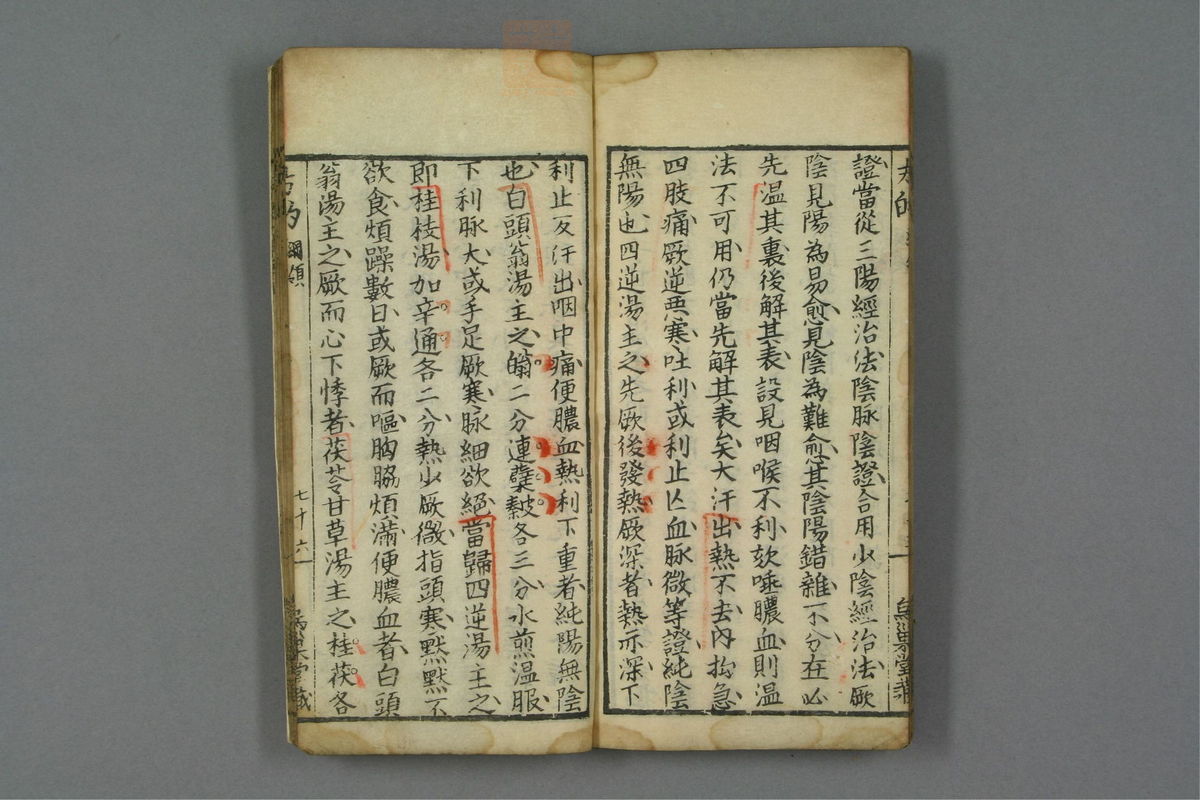 證當從三陽經治法陰脉陰證合用少陰經治法厥
陰見陽為易愈見陰為難愈其陰陽錯雜不分在必
先温其裏後解其表設見咽喉不利欬唾膿血則温
法不可用仍當先解其表矣大汗出熱不去内拘急
四肢痛厥逆悪寒吐利或利止亡血脉微等證純陰
無陽也四逆湯主之先厥後發熱厥深者熱亦深下
利止反汗出咽中痛便膿血熱利下重者純陽無陰
也白頭翁湯主之翁二分連蘗各三分水煎温服
下利脉大或手足厥寒脉細欲絶當歸四逆湯主之
即桂枝湯加辛通各二分熱少厥微指頭寒黙黙不
欲食煩躁數日或厥而嘔胸脇煩滿便膿血者白頭
翁湯主之厥而心下悸者茯苓甘草湯主之桂茯各
綱領
七十六